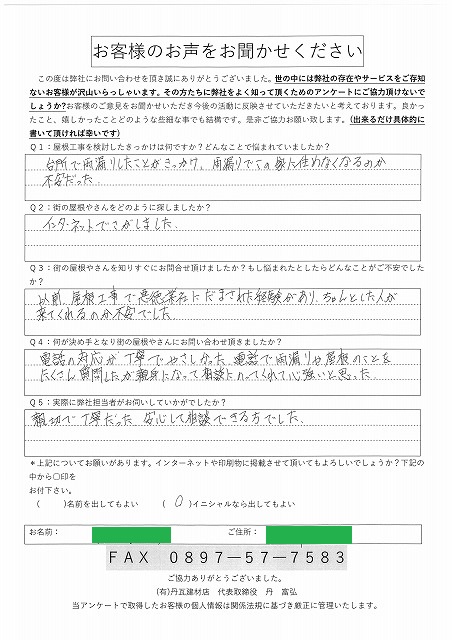 お客様のお声をお聞かせください
この度は弊社にお問い合わせを頂き誠にありがとうございました。世の中には弊社の存在やサービスをご存知
ないお客様が沢山いらっしゃいます。その方たちに弊社をよく知って頂くためのアンケートにご協力頂けないで
しょうか?お客様のご意見をお聞かせいただき今後の活動に反映させていただきたいと考えております。良かっ
たこと、嬉しかったことどのような些細な事でも結構です。是非ご協力お願い致します。(出来るだけ具体的に
書いて頂ければ幸いです)
Q1:屋根工事を検討したきっかけは何ですか?どんなことで悩まれていましたか?
台所で雨漏りしたことがきっかけ、雨漏りでこの家に住めなくなるのか
不安だった.
Q2:街の屋根やさんをどのように探しましたか?
インターネットでさがしました.
Q3:街の屋根やさんを知りすぐにお問合せ頂けましたか?もし悩まれたとしたらどんなことがご不安でした
か?
以前、屋根工事で悪徳業者にだまされた経験があり、ちゃんとした人が
来てくれるのか不安でした.
Q4:何が決め手となり街の屋根やさんにお問い合わせ頂きましたか?
電話の対応が丁寧でやさしかった、電話で雨漏りや屋根のことを
たくさん質問したが親身になって相談にのってくれて心強いと思った
Q5:実際に弊社担当者がお伺いしていかがでしたか?
親切で丁寧だった、安心して相談できる方でした.
*上記についてお願いがあります。インターネットや印刷物に掲載させて頂いてもよろしいでしょうか?下記の
中から〇印を
お付け下さい。
( )名前を出してもよい (〇)イニシャルなら出してもよい
お名前: ご住所:
FAX 0897-57-7583
ご協力ありがとうございました。
(有)丹瓦建材店 代表取締役 丹 富弘
当アンケートで取得したお客様の個人情報は関係法規に基づき厳正に管理いたします。